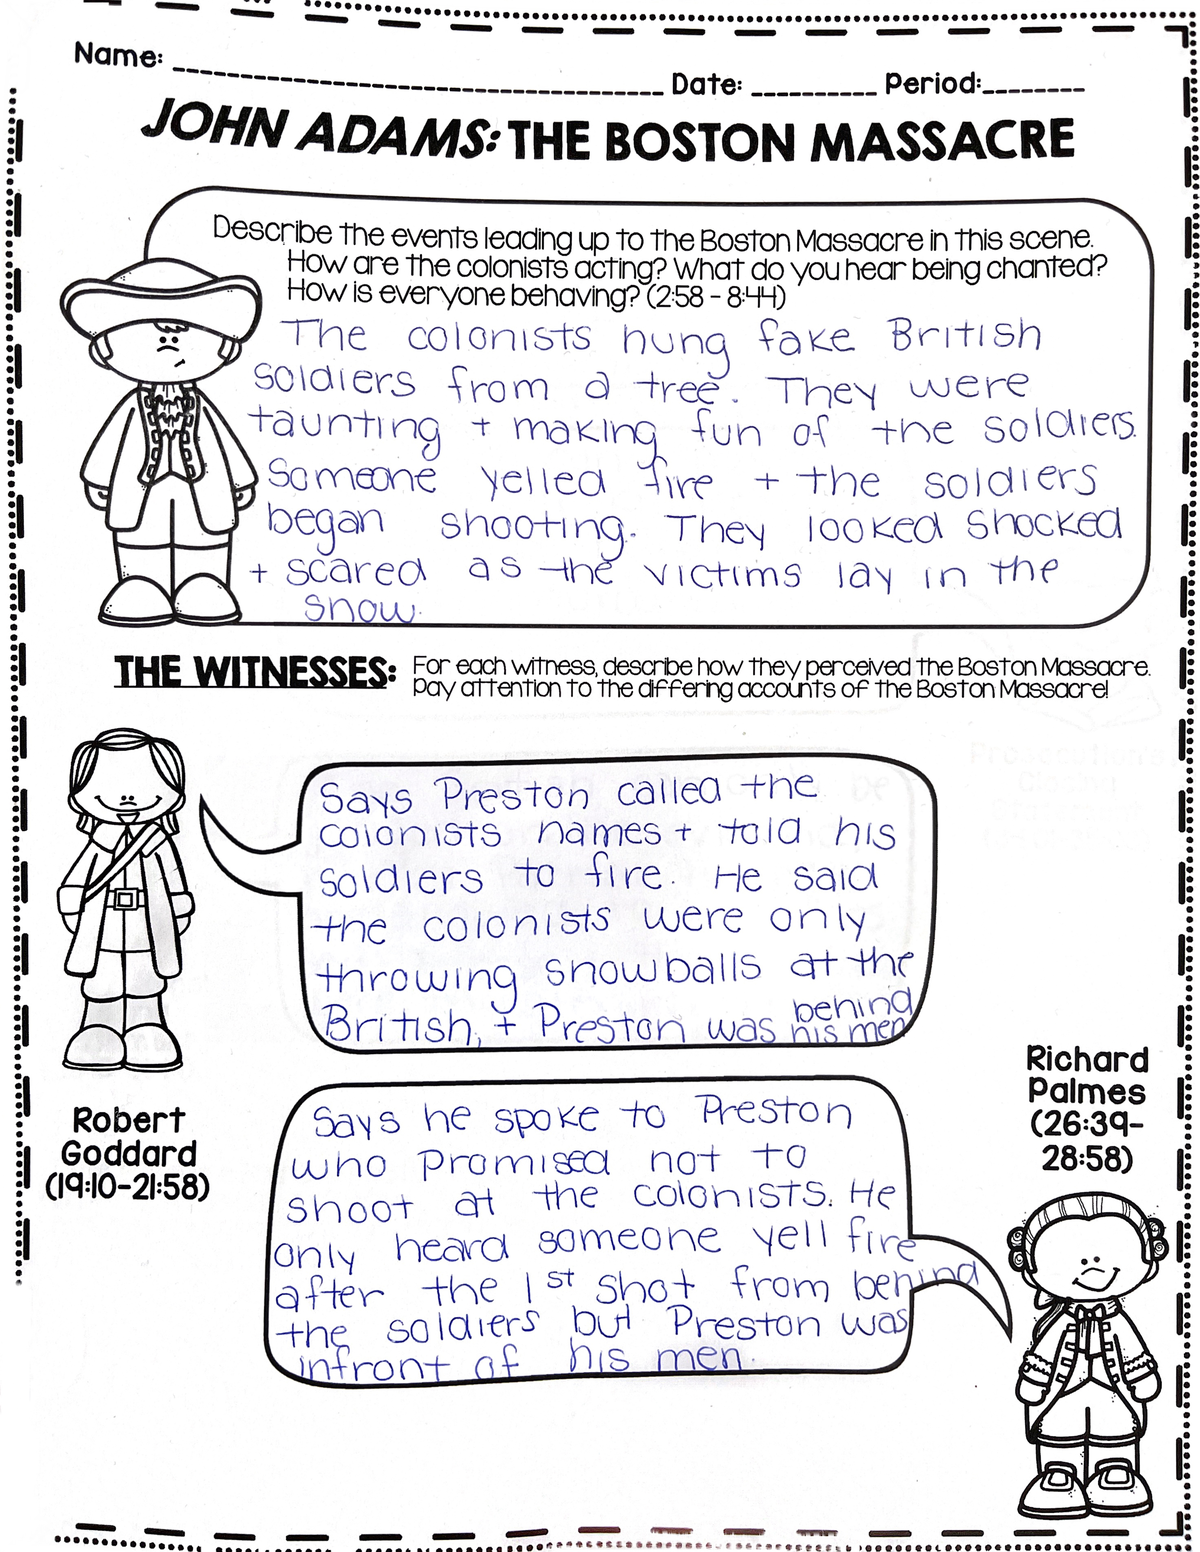 Name: ____________ Date: ____________ Period: ________
JOHN ADAMS: THE BOSTON MASSACRE
Describe the events leading up to the Boston Massacre in this scene.
How are the colonists acting? What do you hear being chanted?
How is everyone behaving? (2:58 - 8:44)
The colonists hung fake British
soldiers from a tree. They were
taunting + making fun of the soldiers.
Someone yelled fire + the soldiers
began shooting. They looked shocked
+ scared as the victims lay in the
snow.
THE WITNESSES: For each witness, describe how they perceived the Boston Massacre.
Pay attention to the differing accounts of the Boston Massacre!
Says Preston called the
colonists names + told his
soldiers to fire. He said
the colonists were only
throwing snowballs at the
British, + Preston was behind
his men
Robert
Goddard
(19:10-21:58)
Richard
Palmes
(26:39-
28:58)
Says he spoke to Preston
who promised not to
shoot at the colonists. He
only heard someone yell fire
after the 1st shot from behind
the soldiers but Preston was
infront of his men.